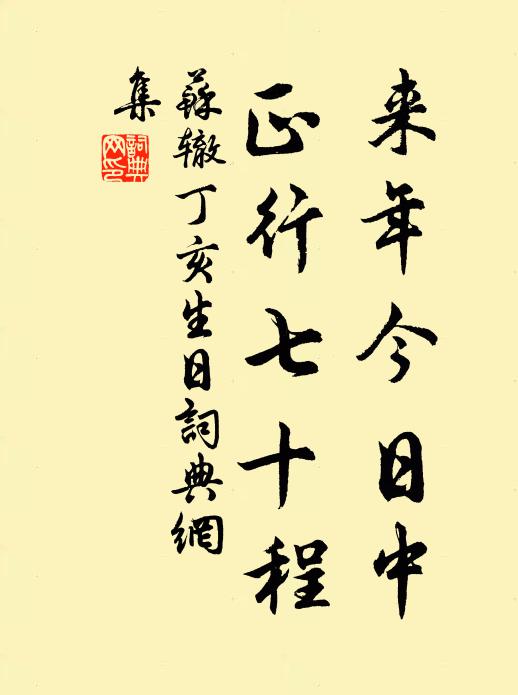 来年今日中
正行七十程
蘇辙丁亥生日詞典網
集
詞典网印